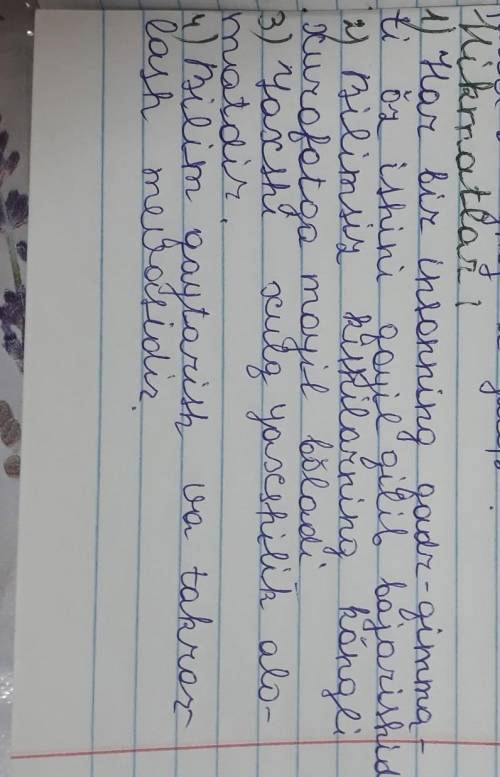 Hikmatlar:
1) Har bir insonning qadr-qimma-
ti öz ishini qoyil qilib bajarishid
2) Bilimsiz kishilarning köngli
xurofotga moyil böladi
3) Yaxshi xulq yaxshilik alo-
matdir.
4) Bilim qaytarish va takror-
lash mevosidir.